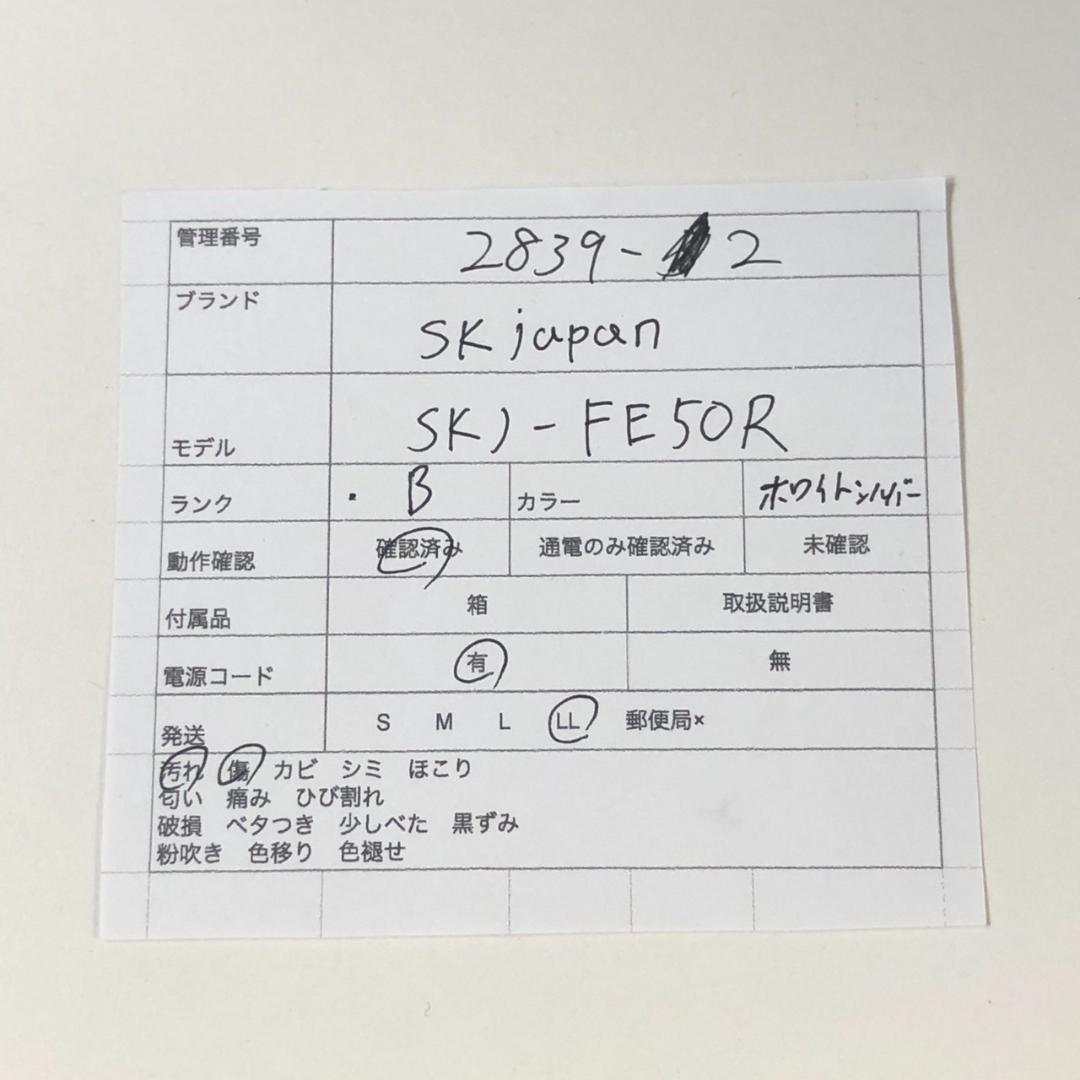 管理番号 2839-2
ブランド SK japan
モデル SKJ-FE50R
ランク ・B カラー ホワイトシルバー
動作確認 確認済み 通電のみ確認済み 未確認
付属品 箱 取扱説明書
電源コード 有 無
発送 S M L LL 郵便局×
汚れ 傷 カビ シミ ほこり
匂い 痛み ひび割れ
破損 ベタつき 少しべた 黒ずみ
粉吹き 色移り 色褪せ